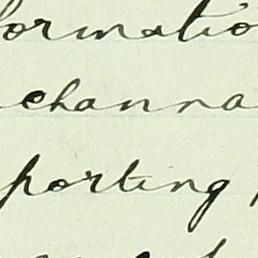 formatio
channa
porting